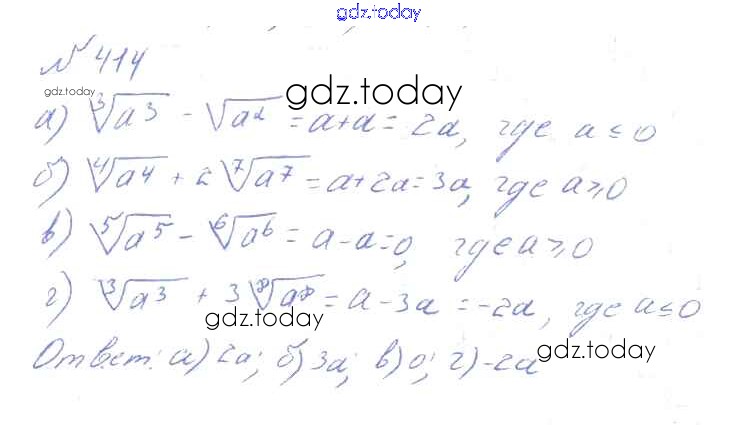 gdz.today
№ 414
gdz.today
gdz.today
а) ∛a³ - √a² = a+a = 2a, где a ≤ 0
б) ⁴√a⁴ + 2 ⁷√a⁷ = a+2a = 3a, где a ≥ 0
в) ⁵√a⁵ - ⁶√a⁶ = a-a = 0, где a ≥ 0
г) ∛a³ + 3 ⁸√a⁸ = a - 3a = -2a, где a ≤ 0
gdz.today
Ответ: а) 2a; б) 3a; в) 0; г) -2a
gdz.today